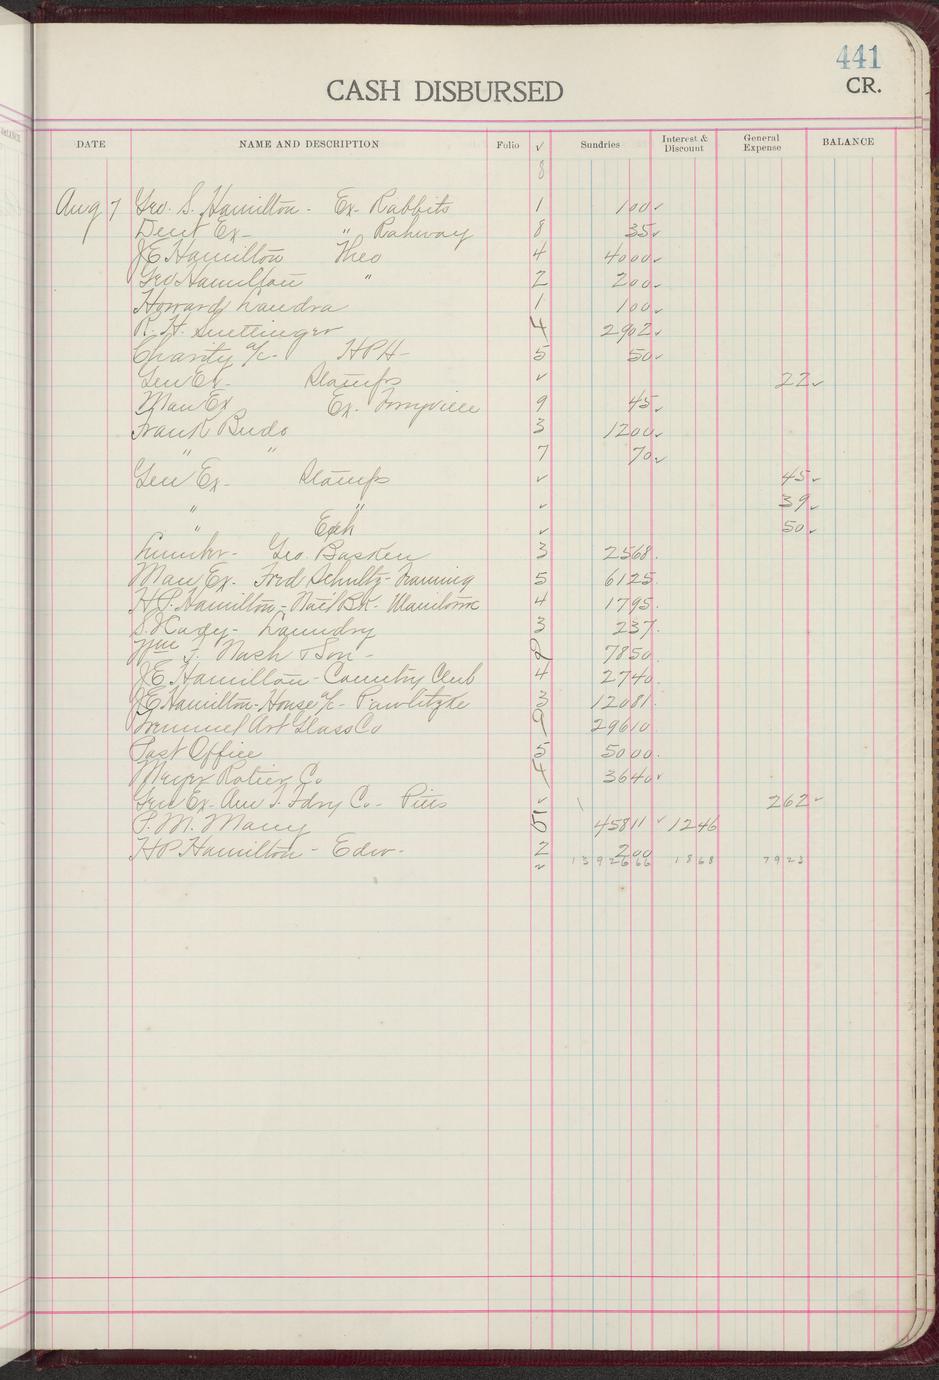 441
CASH DISBURSED
CR.
DATE NAME AND DESCRIPTION Folio √ Sundries Interest & Discount General Expense BALANCE
8
Aug 7 Geo. S. Hamilton - Ex- Rabbits 1 100✓
Ex- " Rahway 8 35✓
JE Hamilton Theo 4 4000✓
Geo Hamilton " 2 200✓
Howard 1 100✓
R. H. 4 2902✓
Charity a/c- HPH- 5 50✓
Gen Ex- Stamps ✓ 22✓
Man Ex Ex- 9 45✓
Frank Budo 3 1200✓
" " 7 70✓
Gen Ex- Stamps ✓ 45✓
" " ✓ 39✓
" Exch ✓ 50✓
Lumber- Geo. Basken 3 2568
Man Ex. Fred Schultz- 5 6125
H.P. Hamilton - Nat'l Bk- Manitowoc 4 1795
S. Kady- Laundry 3 237
Wm F. Nash & Son- 9 7850
JE Hamilton - Country Club 4 2740
JE Hamilton- House a/c- Pawlitzke 3 12081
Art Glass Co 9 29610
Post Office 5 5000
Meyer Rotier Co 4 3640✓
Gen Ex- Am T. Fdry Co- Pitts ✓ 262✓
P. M. Many 5 45811 ✓ 1246
HP Hamilton - Edw. 2 200
✓ 1392666 1868 7923